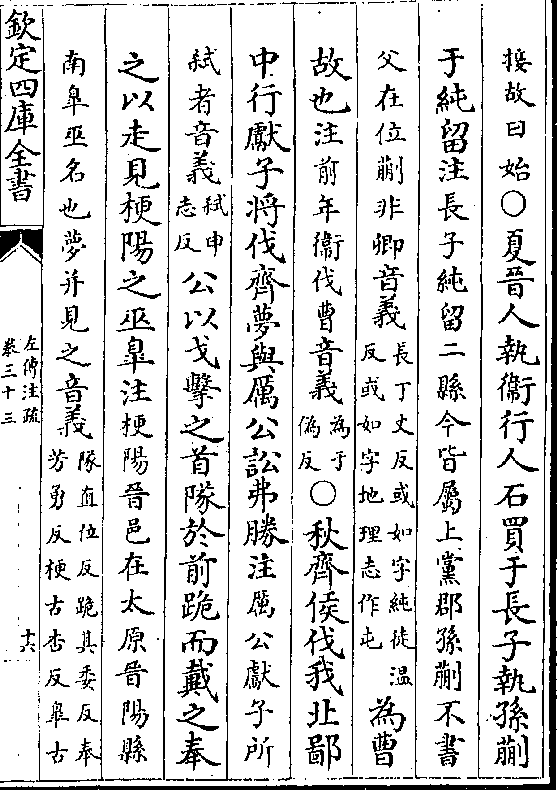 接故曰始○夏晉人執衞行人石買于長子執孫蒯
于純留注長子純留二縣今皆屬上黨郡孫蒯不書
父在位蒯非卿音義長丁丈反或如字純徒溫反或如字地理志作屯為曹
故也注前年衞伐曹音義為于偽反○秋齊侯伐我北鄙
中行獻子將伐齊夢與厲公訟弗勝注厲公獻子所
弑者音義弑申志反公以戈擊之首隊於前跪而戴之奉
之以走見梗陽之巫臯注梗陽晉邑在太原晉陽縣
南臯巫名也夢并見之音義隊直位反跪其委反奉芳勇反梗古杏反臯古
欽定四庫全書
左傳注疏
卷三十三
十六